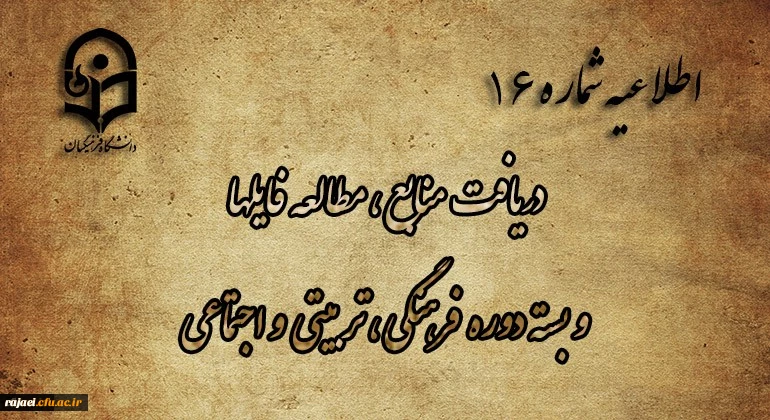 اطلاعیه شماره ۱۶
دانشگاه فرهنگیان
دریافت منابع ، مطالعه فایلها
و بسته دوره فرهنگی ، تربیتی و اجتماعی
rajaei.cfu.ac.ir